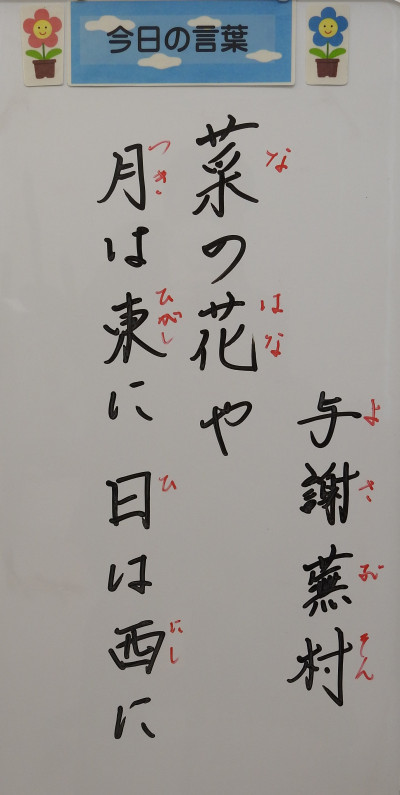 今日の言葉
与謝蕪村
よさぶそん
菜の花や
なはな
月は東に 日は西に
つきひがしひにし